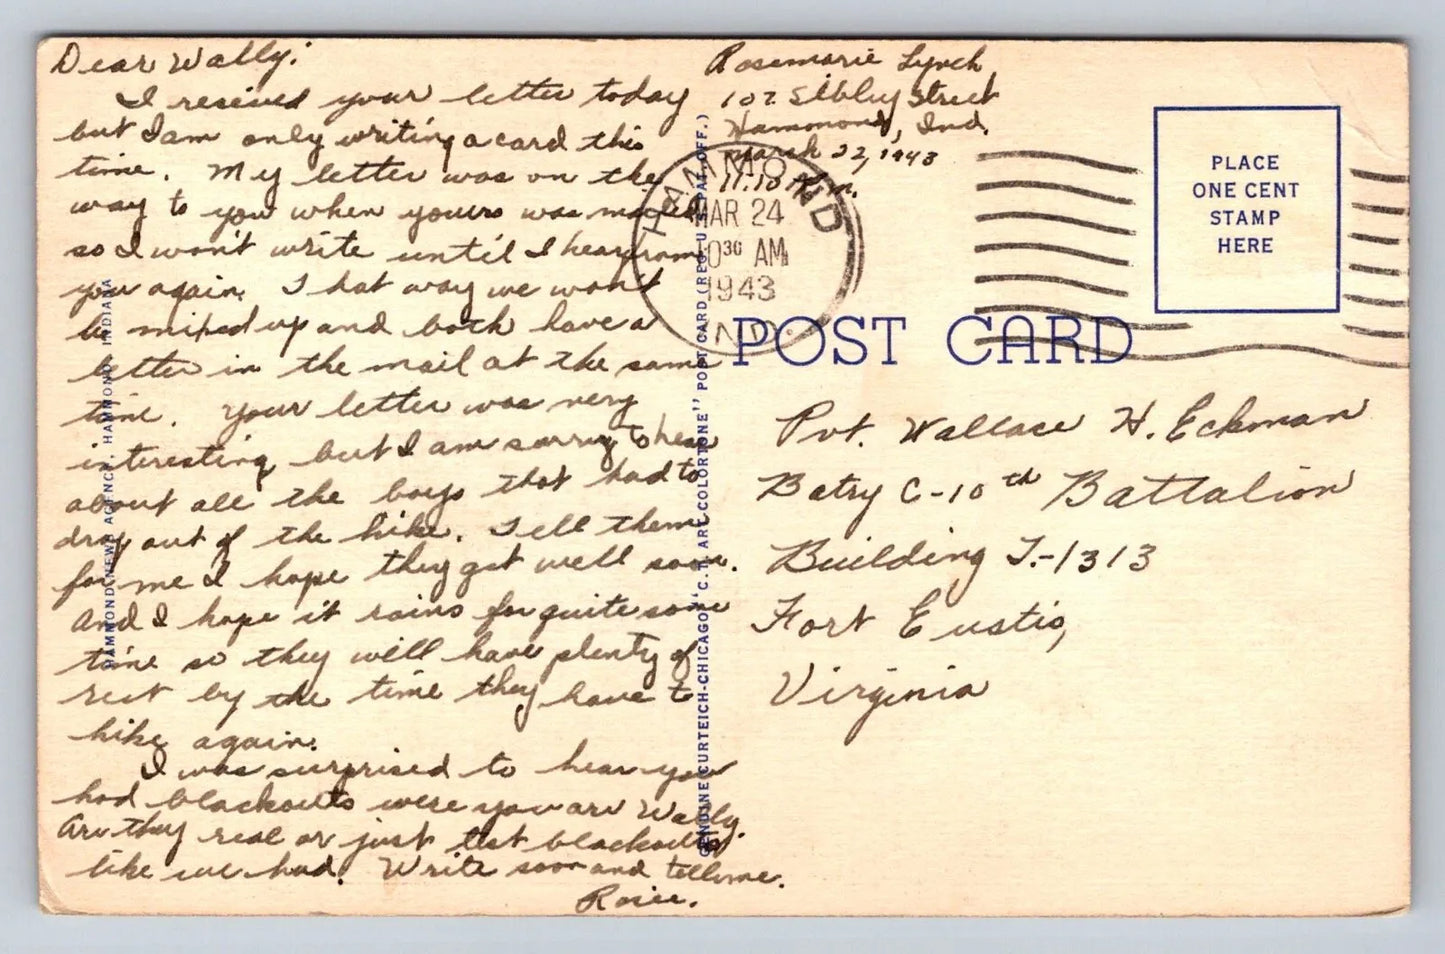 Dear Wally:
I received your letter today
but I am only writing a card this
time. My letter was on the
way to you when yours was mailed
so I won't write until I hear from
you again. That way we won't
be mixed up and both have a
letter in the mail at the same
time. Your letter was very
interesting but I am sorry to hear
about all the boys that had to
drop out of the hike. Tell them
for me I hope they get well soon.
And I hope it rains for quite some
time so they will have plenty of
rest by the time they have to
hike again.
I was surprised to hear you
had blackouts were you are Wally.
Are they real or just test blackouts
like we had. Write soon and tell me.
Rosie.
Rosemarie Lynch
107 Sibley Street
Hammond, Ind.
March 22, 1943
11:10 P.m.
HAMMOND
MAR 24
10 30 AM
1943
IND.
PLACE
ONE CENT
STAMP
HERE
POST CARD
Pvt. Wallace H. Eckman
Batry C-10th Battalion
Building T-1313
Fort Eustis,
Virginia
HAMMOND NEWS AGENCY, HAMMOND, INDIANA
GENUINE CURTEICH-CHICAGO "C.T. ART-COLORTONE" POST CARD (REG. U.S. PAT. OFF.)